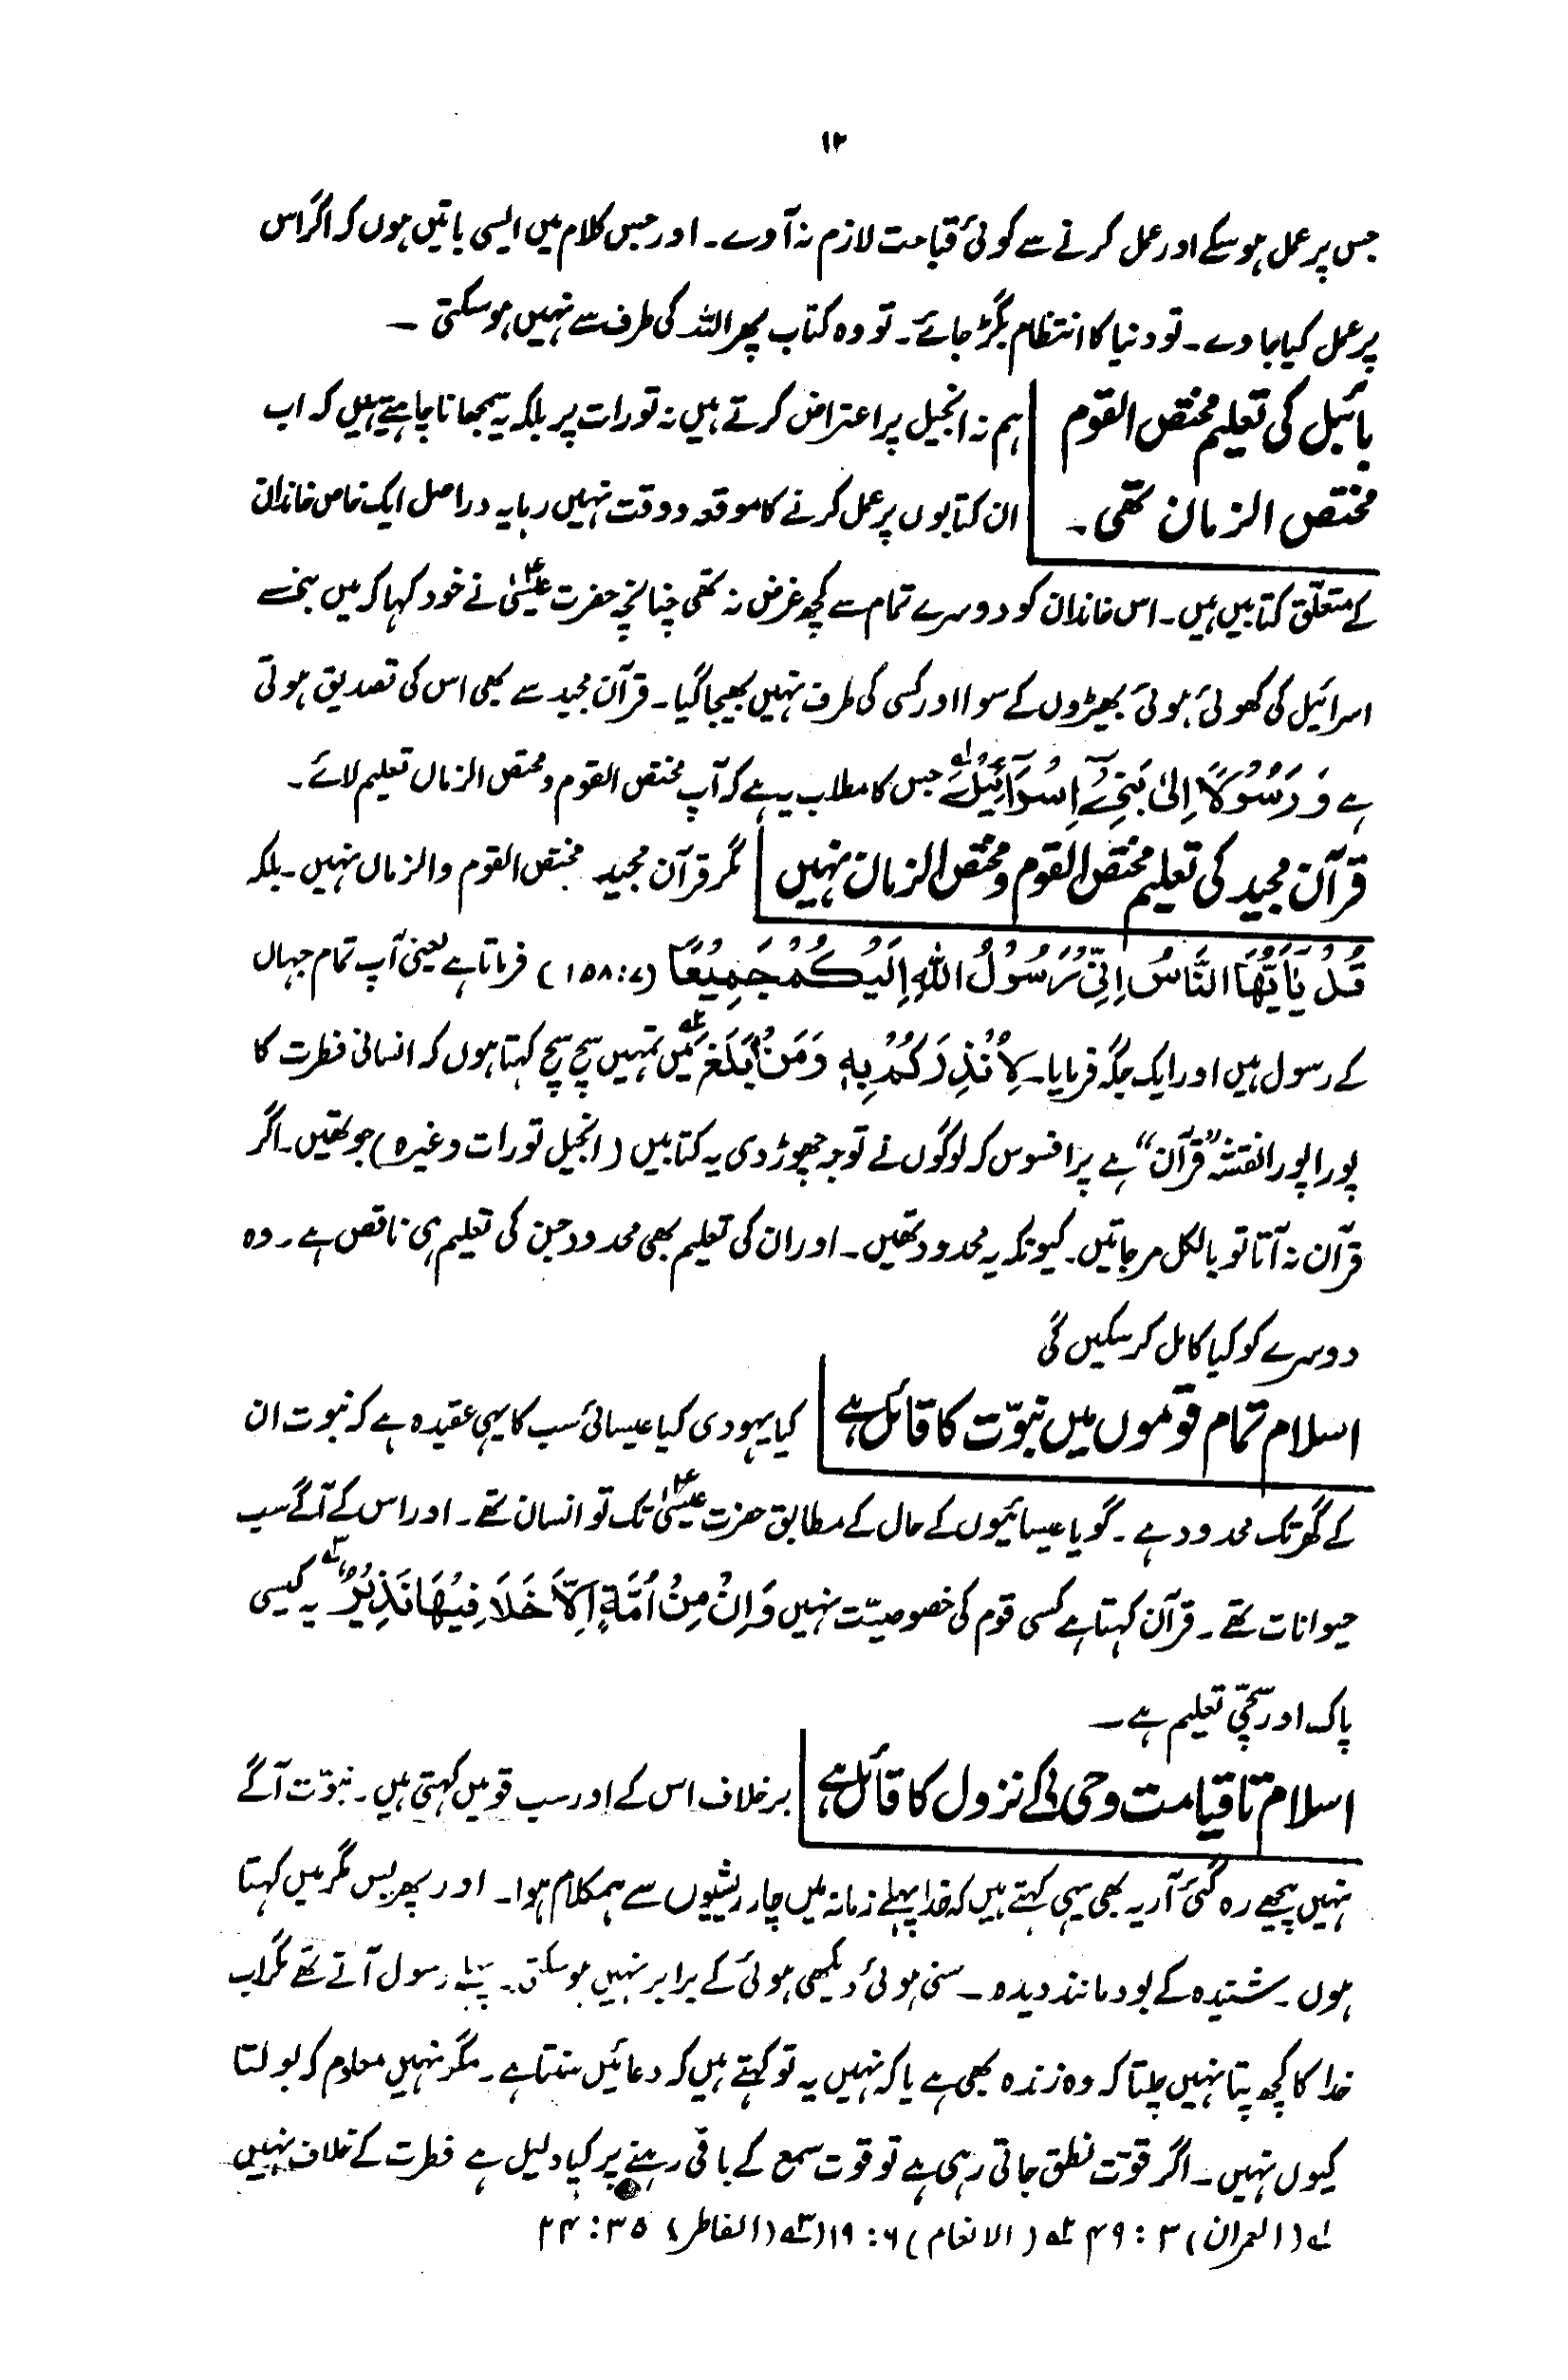 ۱۲
جس پر عمل ہو سکے اور عمل کرنے سے کوئی قباحت لازم نہ آوے۔ اور جس کلام میں ایسی باتیں ہوں کہ اگر اس
پر عمل کیا جاوے۔ تو دنیا کا انتظام بگڑ جائے۔ تو وہ کتاب پھر اللہ کی طرف سے نہیں ہو سکتی ۔
بائبل کی تعلیم مختص القوم
مختص الزمان تھی۔
ہم نہ انجیل پر اعتراض کرتے ہیں نہ تورات پر بلکہ یہ سمجھانا چاہتے ہیں کہ اب
ان کتابوں پر عمل کرنے کا موقعہ و وقت نہیں رہا یہ دراصل ایک خاص خاندان
کے متعلّق کتابیں ہیں۔ اس خاندان کو دوسرے تمام سے کچھ غرض نہ تھی چنانچہ حضرت عیسیٰؑ نے خود کہا کہ میں بنے
اسرائیل کی کھوئی ہوئی بھیڑوں کے سوا اور کسی کی طرف نہیں بھیجا گیا۔ قرآن مجید سے بھی اس کی تصدیق ہوتی
ہے وَ رَسُوْلًا اِلٰى بَنِیْۤ اِسْرَآئِیْلَ ۱؎ جس کا مطلب یہ ہے کہ آپ مختص القوم و مختص الزماں تعلیم لائے۔
قرآن مجید کی تعلیم مختص القوم و مختص الزمان نہیں
مگر قرآن مجید مختص القوم والزماں نہیں۔ بلکہ
قُلْ یٰۤاَیُّهَا النَّاسُ اِنِّیْ رَسُوْلُ اللّٰهِ اِلَیْكُمْ جَمِیْعًا (۷:۱۵۸) فرماتا ہے یعنی آپ تمام جہاں
کے رسول ہیں اور ایک جگہ فرمایا۔ لِاُنْذِرَكُمْ بِهٖ وَمَنْۢ بَلَغَ ۲؎ میں تمہیں سچ سچ کہتا ہوں کہ انسانی فطرت کا
پورا پورا نقشہ "قرآن" ہے پر افسوس کہ لوگوں نے توجہ چھوڑ دی یہ کتابیں (انجیل تورات وغیرہ) جو تھیں۔ اگر
قرآن نہ آتا تو بالکل مر جاتیں۔ کیونکہ یہ محدود تھیں۔ اور ان کی تعلیم بھی محدود جن کی تعلیم ہی ناقص ہے۔ وہ
دوسرے کو کیا کامل کر سکیں گی
اسلام تمام قوموں میں نبوّت کا قائل ہے
کیا یہودی کیا عیسائی سب کا یہی عقیدہ ہے کہ نبوت ان
کے گھر تک محدود ہے۔ گویا عیسائیوں کے حال کے مطابق حضرت عیسیٰؑ تک تو انسان تھے۔ اور اس کے آگے سب
حیوانات تھے۔ قرآن کہتا ہے کسی قوم کی خصوصیّت نہیں وَ اِنْ مِّنْ اُمَّةٍ اِلَّا خَلَا فِیْهَا نَذِیْرٌ ۳؎ یہ کیسی
پاک اور سچّی تعلیم ہے۔
اسلام تا قیامت وحی کے نزول کا قائل ہے
برخلاف اس کے اور سب قومیں کہتی ہیں۔ نبوّت آگے
نہیں پیچھے رہ گئی آریہ بھی یہی کہتے ہیں کہ خدا پہلے زمانہ میں چار رشیوں سے ہمکلام ہوا۔ اور پھر بس مگر میں کہتا
ہوں۔ شنیدہ کے بود مانند دیدہ ۔ سنی ہوئی دیکھی ہوئی کے برابر نہیں ہو سکتی۔ پہلے رسول آتے تھے مگر اب
خدا کا کچھ پتا نہیں چلتا کہ وہ زندہ بھی ہے یا کہ نہیں یہ تو کہتے ہیں کہ دعائیں سنتا ہے۔ مگر نہیں معلوم کہ بولتا
کیوں نہیں۔ اگر قوّت نطق جاتی رہی ہے تو قوت سمع کے باقی رہنے پر کیا دلیل ہے فطرت کے خلاف نہیں
۱؎ (العمران) ۳ : ۴۹ ۲؎ (الانعام) ۶ : ۱۹ ۳؎ (الفاطر) ۳۵ : ۲۴